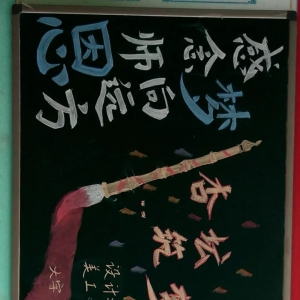 感念师恩
梦向远方
杏坛筑
设计:
美工:
大字